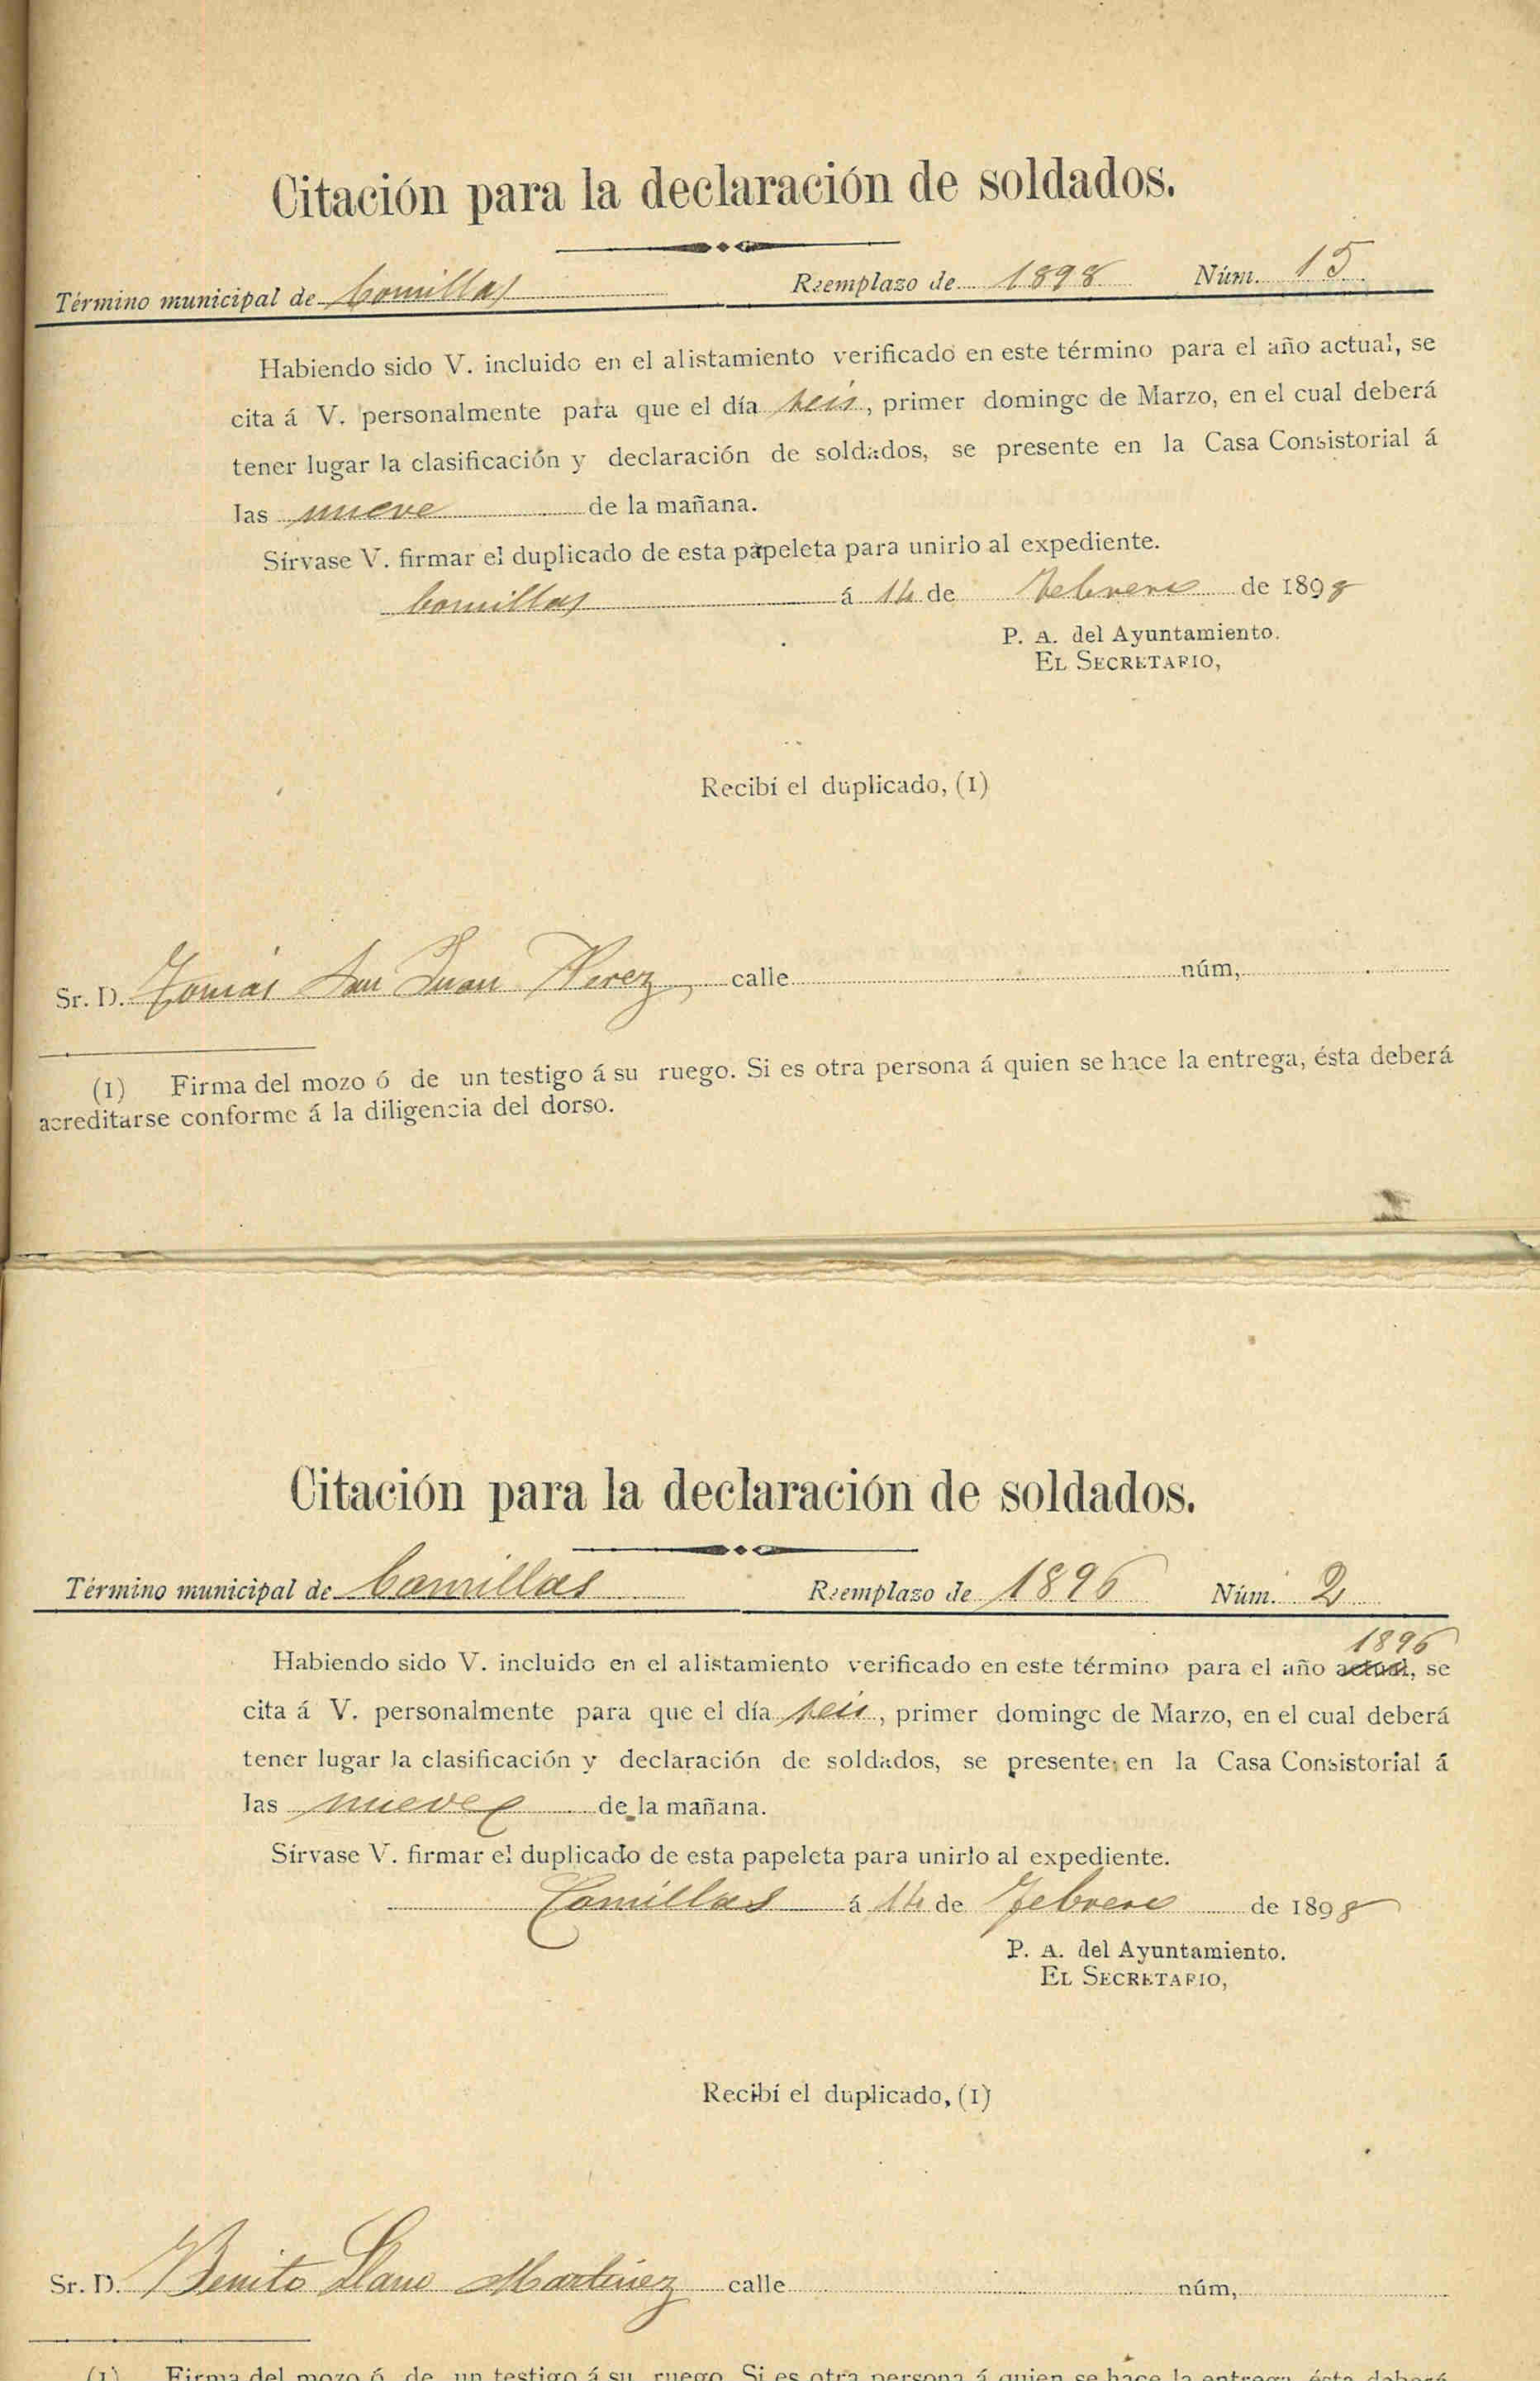 Citación para la declaración de soldados.
Término municipal de Comillas Reemplazo de 1898 Núm. 15
Habiendo sido V. incluido en el alistamiento verificado en este término para el año actual, se
cita á V. personalmente para que el día seis, primer domingo de Marzo, en el cual deberá
tener lugar la clasificación y declaración de soldados, se presente en la Casa Consistorial á
las nueve de la mañana.
Sírvase V. firmar el duplicado de esta papeleta para unirlo al expediente.
Comillas á 14 de Febrero de 1898
P. A. del Ayuntamiento.
EL SECRETARIO,
Recibí el duplicado, (1)
Sr. D. Tomás San Juan Perez, calle núm,
(1) Firma del mozo ó de un testigo á su ruego. Si es otra persona á quien se hace la entrega, ésta deberá
acreditarse conforme á la diligencia del dorso.
Citación para la declaración de soldados.
Término municipal de Comillas Reemplazo de 1896 Núm. 2
1896
Habiendo sido V. incluido en el alistamiento verificado en este término para el año actual, se
cita á V. personalmente para que el día seis, primer domingo de Marzo, en el cual deberá
tener lugar la clasificación y declaración de soldados, se presente en la Casa Consistorial á
las nueve de la mañana.
Sírvase V. firmar el duplicado de esta papeleta para unirlo al expediente.
Comillas á 14 de Febrero de 1898
P. A. del Ayuntamiento.
EL SECRETARIO,
Recibí el duplicado, (1)
Sr. D. Benito Llano Martinez calle núm,
(1) Firma del mozo ó de un testigo á su ruego. Si es otra persona á quien se hace la entrega, ésta deberá